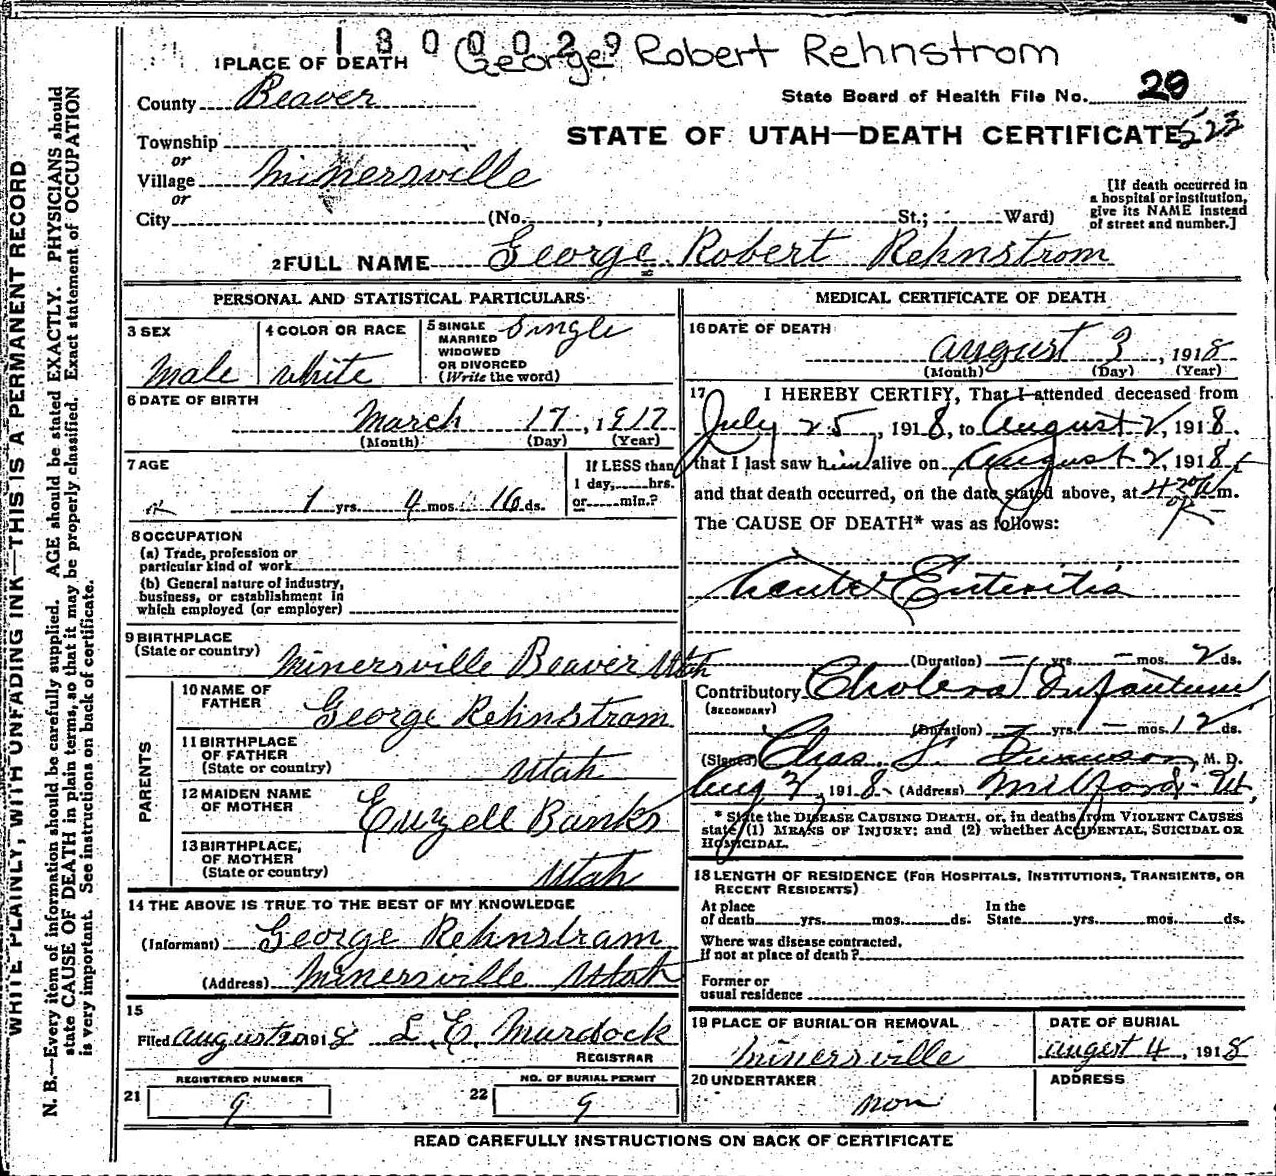 1300029 George Robert Rehnstrom
1 PLACE OF DEATH
County Beaver
State Board of Health File No. 29
Township
STATE OF UTAH—DEATH CERTIFICATE 522
or
Village Minersville
or
City (No. , St.; Ward)
[If death occurred in a hospital or institution, give its NAME instead of street and number.]
2 FULL NAME George Robert Rehnstrom
PERSONAL AND STATISTICAL PARTICULARS
3 SEX
Male
4 COLOR OR RACE
White
5 SINGLE
MARRIED
WIDOWED
OR DIVORCED
(Write the word)
Single
6 DATE OF BIRTH
March 17, 1917
(Month) (Day) (Year)
7 AGE
ok 1 yrs. 4 mos. 16 ds.
If LESS than
1 day, hrs.
or min.?
8 OCCUPATION
(a) Trade, profession or
particular kind of work
(b) General nature of industry,
business, or establishment in
which employed (or employer)
9 BIRTHPLACE
(State or country)
Minersville Beaver Utah
PARENTS
10 NAME OF
FATHER
George Rehnstrom
11 BIRTHPLACE
OF FATHER
(State or country)
Utah
12 MAIDEN NAME
OF MOTHER
Euzell Banks
13 BIRTHPLACE,
OF MOTHER
(State or country)
Utah
14 THE ABOVE IS TRUE TO THE BEST OF MY KNOWLEDGE
(Informant) George Rehnstram
(Address) Minersville Utah
15
Filed august 20 1918 L. E. Murdock
REGISTRAR
REGISTERED NUMBER
21 9
NO. OF BURIAL PERMIT
22 9
MEDICAL CERTIFICATE OF DEATH
16 DATE OF DEATH
august 3, 1918
(Month) (Day) (Year)
17 I HEREBY CERTIFY, That I attended deceased from
July 25, 1918, to August 2, 1918.
that I last saw him alive on August 2, 1918
and that death occurred, on the date stated above, at 4 20 A m.
ok
The CAUSE OF DEATH* was as follows:
Acute Enteritis
(Duration) — yrs. — mos. 2 ds.
Contributory Cholera Infantum
(SECONDARY)
(Duration) — yrs. — mos. 12 ds.
(Signed) Chas. , M. D.
Aug 2, 1918 (Address) Milford - Ut.
* State the DISEASE CAUSING DEATH, or, in deaths from VIOLENT CAUSES
state (1) MEANS OF INJURY; and (2) whether ACCIDENTAL, SUICIDAL OR
HOMICIDAL.
18 LENGTH OF RESIDENCE (FOR HOSPITALS, INSTITUTIONS, TRANSIENTS, OR
RECENT RESIDENTS)
At place
of death yrs. mos. ds.
In the
State yrs. mos. ds.
Where was disease contracted,
if not at place of death?
Former or
usual residence
19 PLACE OF BURIAL OR REMOVAL
Minersville
DATE OF BURIAL
august 4, 1918
20 UNDERTAKER
non
ADDRESS
READ CAREFULLY INSTRUCTIONS ON BACK OF CERTIFICATE
WRITE PLAINLY, WITH UNFADING INK—THIS IS A PERMANENT RECORD
N. B.—Every item of information should be carefully supplied. AGE should be stated EXACTLY. PHYSICIANS should
state CAUSE OF DEATH in plain terms, so that it may be properly classified. Exact statement of OCCUPATION
is very important. See instructions on back of certificate.